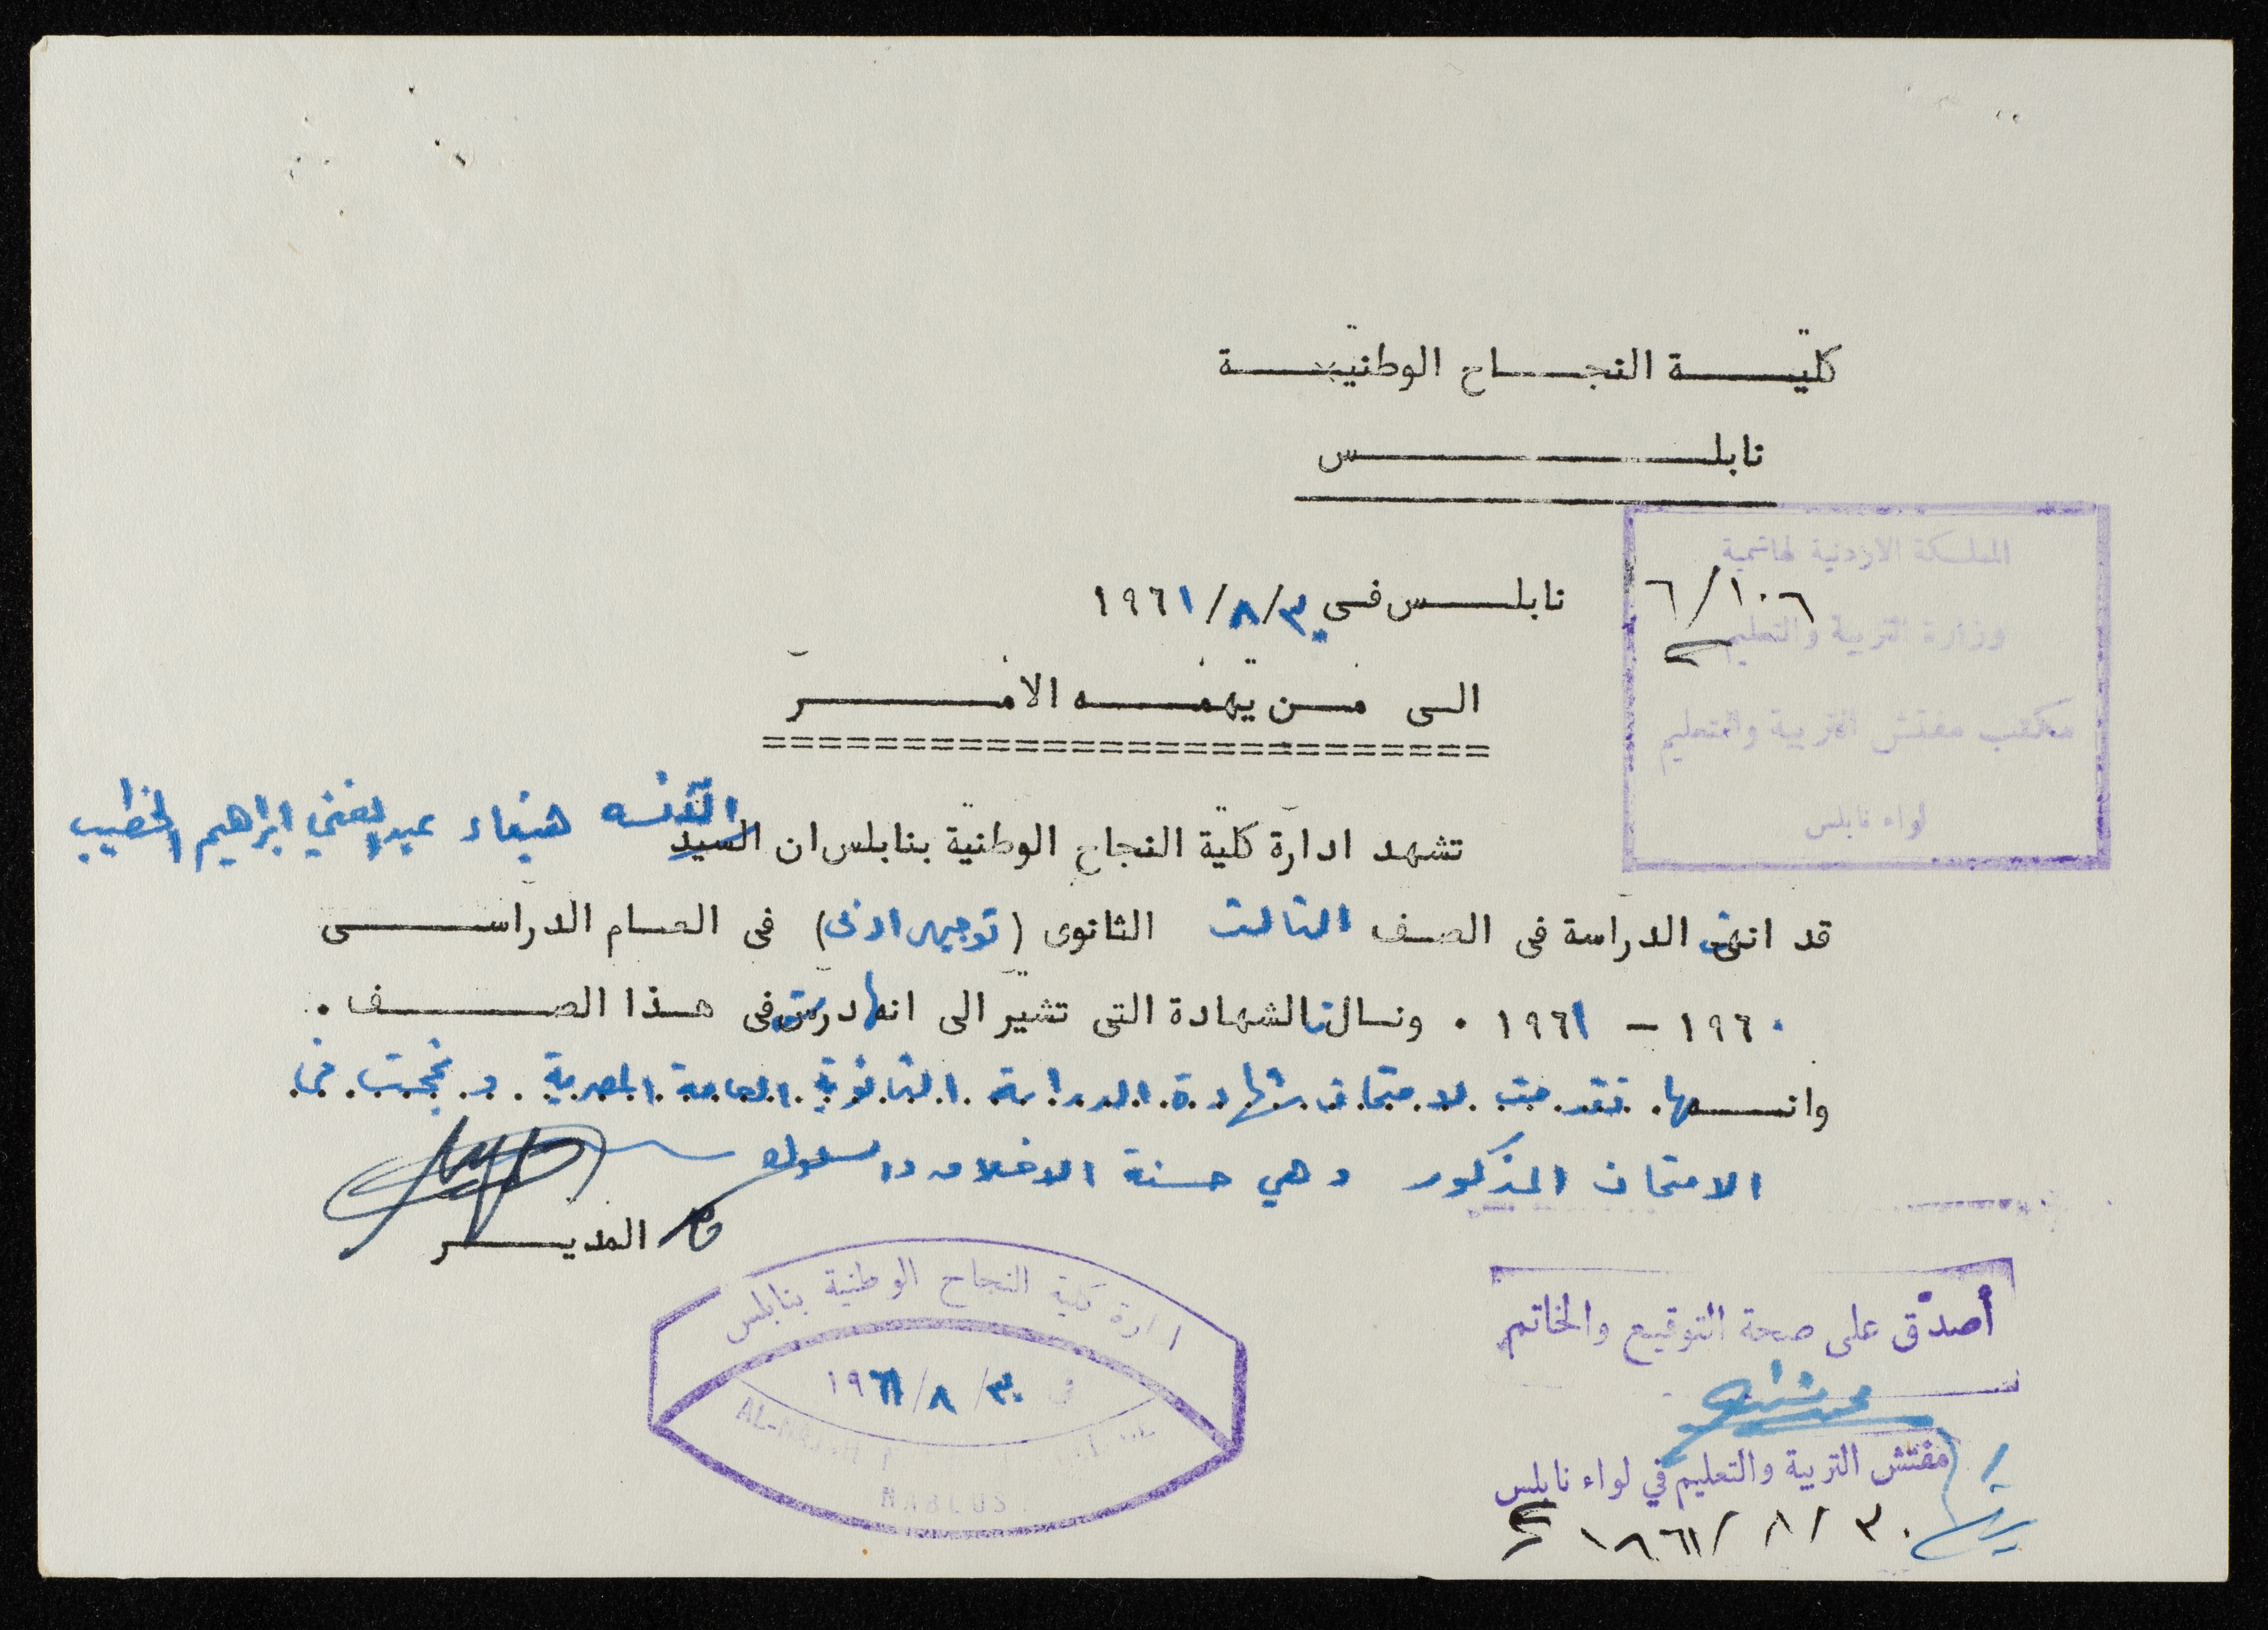 كليـــة النجـــاح الوطنيـــة
نابلـــــس
المملكة الاردنية الهاشمية
٦/١٠٦
وزارة التربية والتعليم
مكتب مفتش التربية والتعليم
لواء نابلس
نابلـــس فـي ٣٠/٨/١٩٦١
الـى مـن يهمـــه الامـــر
تشهد ادارة كلية النجاح الوطنية بنابلس ان السيد الآنسه هيفاء عبد الغني ابراهيم الخطيب
قد انهت الدراسة فى الصف الثالث الثانوى (توجيهي ادبي) فى العـام الدراســـى
١٩٦٠ - ١٩٦١ . ونسال بالشهادة التى تشير الى انها درست فى هـذا الصـــف .
وانـــها تقدمت لامتحان شهادة الدراسة الثانوية العامة المصرية . ونجحت في
الامتحان المذكور وهي حسنة الاخلاق والسلوك
المديـــر
ادارة كلية النجاح الوطنية بنابلس
في ٣٠/٨/١٩٦١
AL-NAJAH
NABLUS
أصدّق على صحة التوقيع والخاتم
مفتش التربية والتعليم في لواء نابلس
٣٠/٨/١٩٦١